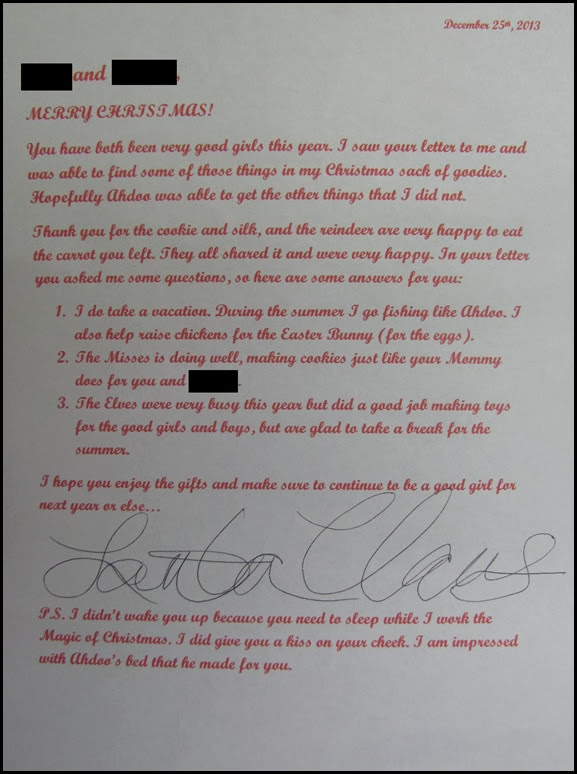 December 25th, 2013
and ,
MERRY CHRISTMAS!
You have both been very good girls this year. I saw your letter to me and
was able to find some of those things in my Christmas sack of goodies.
Hopefully Ahdoo was able to get the other things that I did not.
Thank you for the cookie and silk, and the reindeer are very happy to eat
the carrot you left. They all shared it and were very happy. In your letter
you asked me some questions, so here are some answers for you:
1. I do take a vacation. During the summer I go fishing like Ahdoo. I
also help raise chickens for the Easter Bunny (for the eggs).
2. The Misses is doing well, making cookies just like your Mommy
does for you and .
3. The Elves were very busy this year but did a good job making toys
for the good girls and boys, but are glad to take a break for the
summer.
I hope you enjoy the gifts and make sure to continue to be a good girl for
next year or else...
Santa Claus
P.S. I didn't wake you up because you need to sleep while I work the
Magic of Christmas. I did give you a kiss on your cheek. I am impressed
with Ahdoo's bed that he made for you.